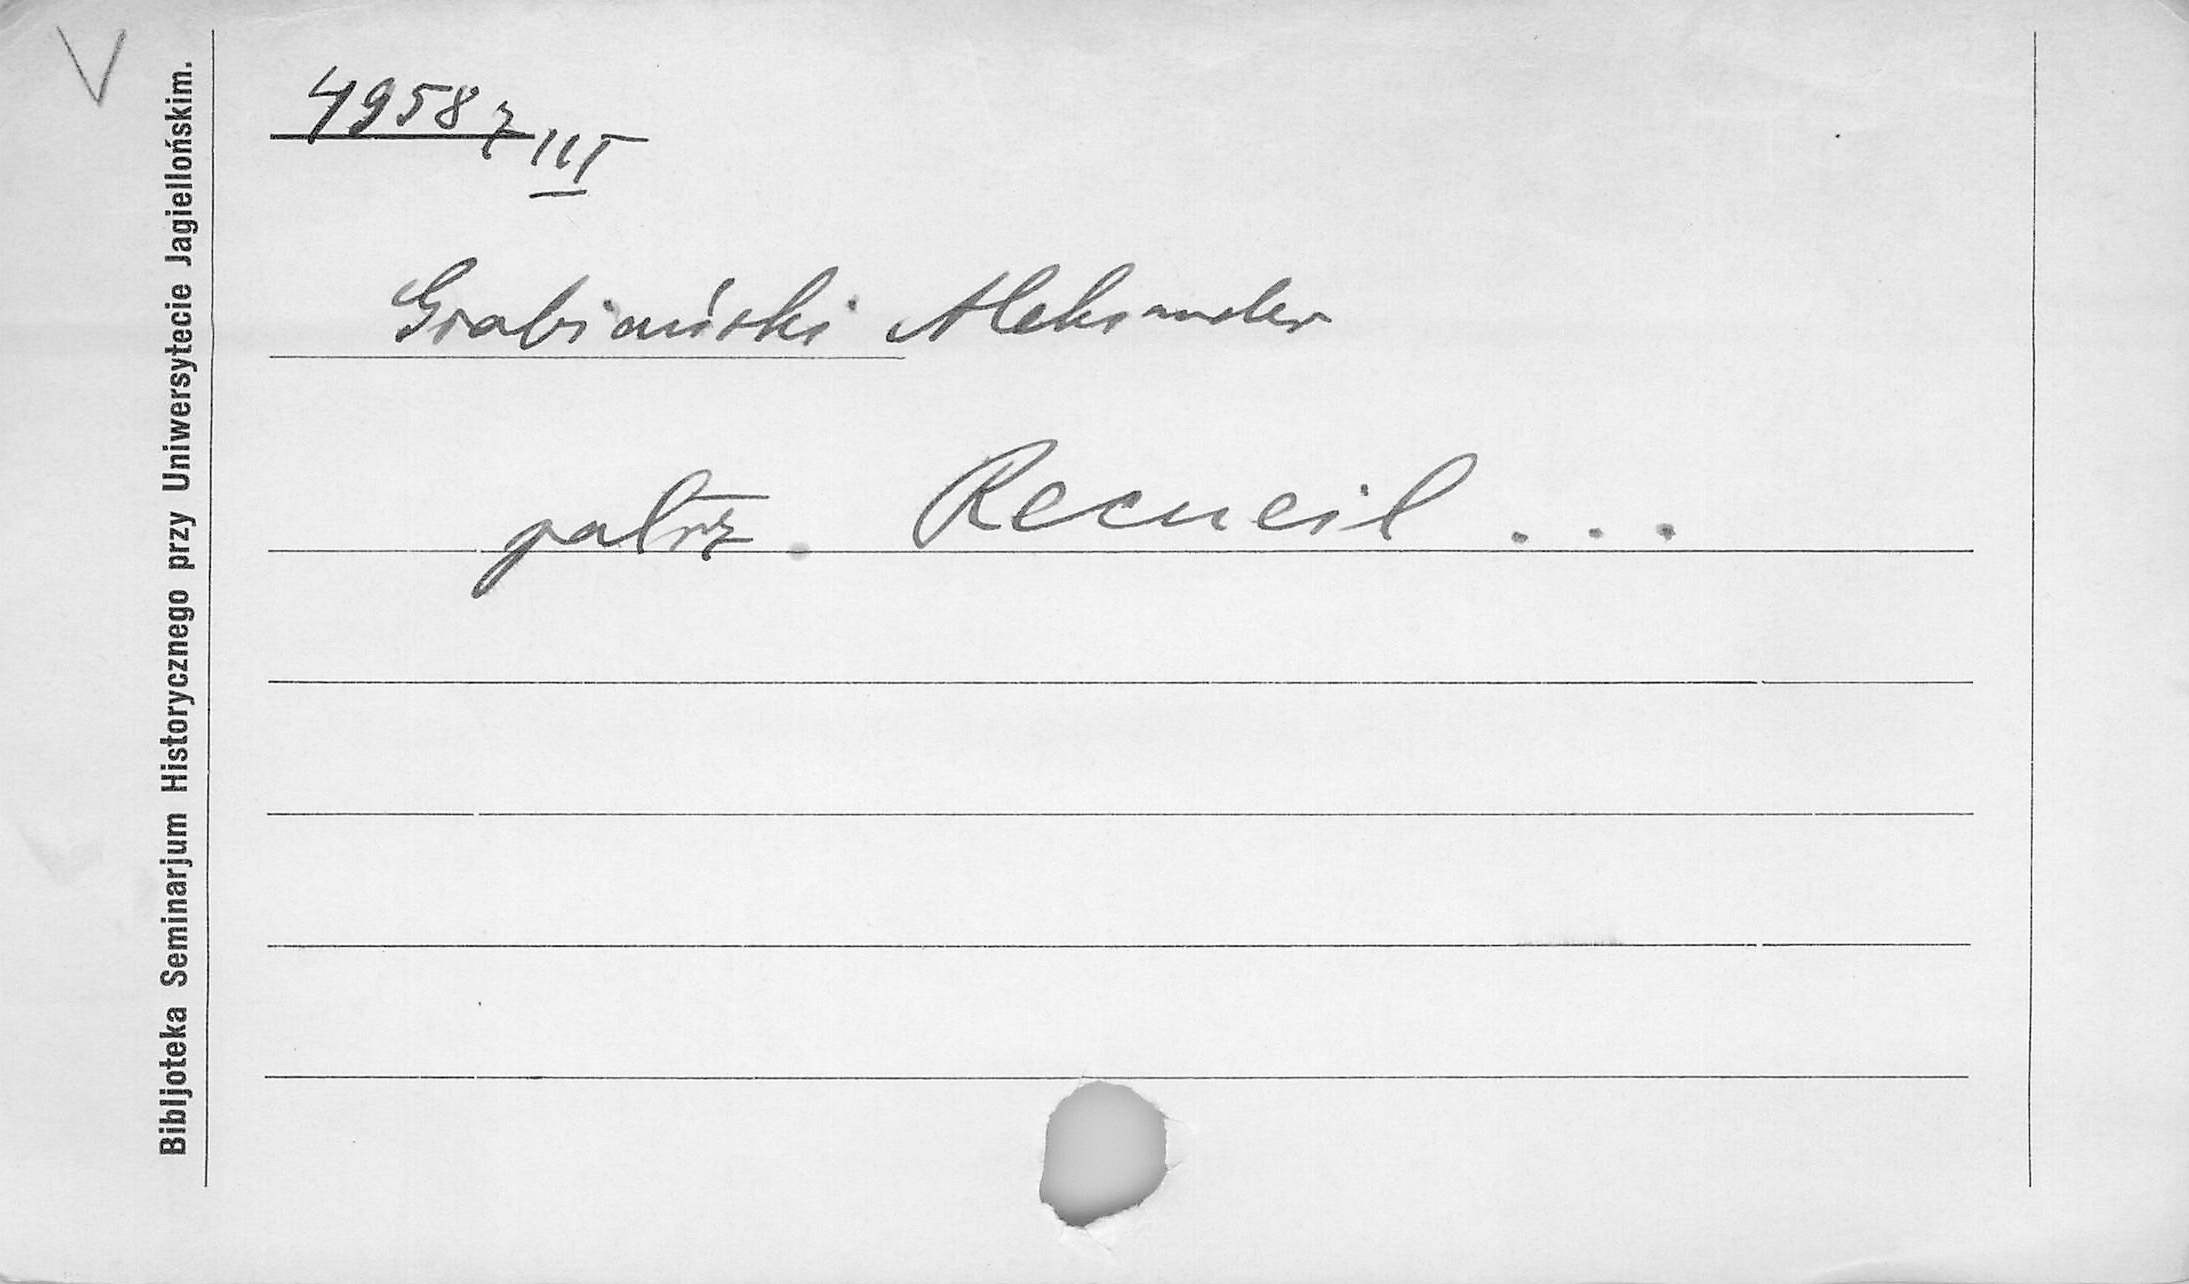 V
49587 III
Grabiański Aleksander
patrz. Recueil ...
Bibljoteka Seminarjum Historycznego przy Uniwersytecie Jagiellońskim.